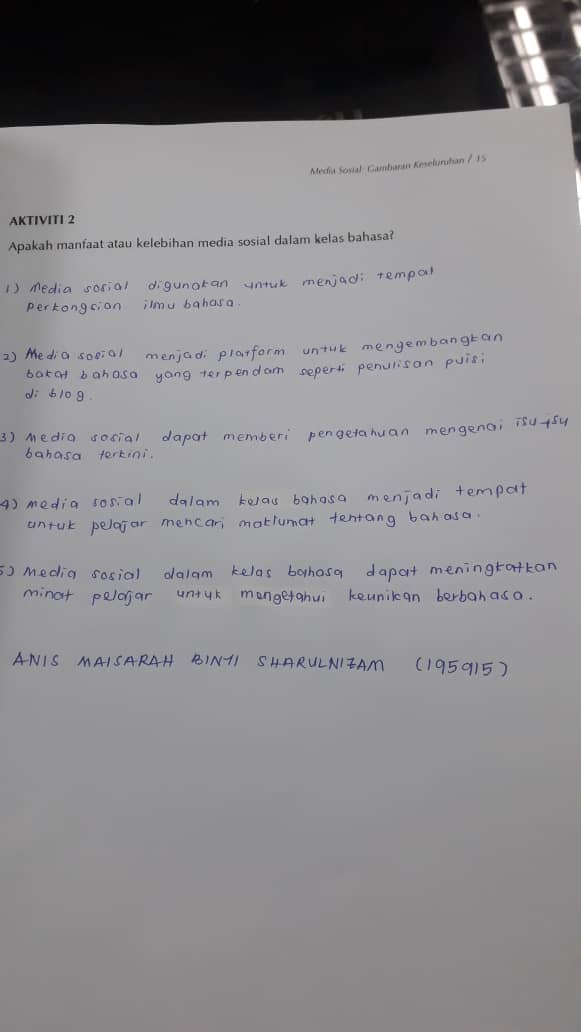 Media Sosial: Gambaran Keseluruhan / 15
AKTIVITI 2
Apakah manfaat atau kelebihan media sosial dalam kelas bahasa?
1) Media sosial digunakan untuk menjadi tempat
perkongsian ilmu bahasa.
2) Media sosial menjadi platform untuk mengembangkan
bakat bahasa yang terpendam seperti penulisan puisi
di blog.
3) Media sosial dapat memberi pengetahuan mengenai isu-isu
bahasa terkini.
4) media sosial dalam kelas bahasa menjadi tempat
untuk pelajar mencari maklumat tentang bahasa.
5) Media sosial dalam kelas bahasa dapat meningkatkan
minat pelajar untuk mengetahui keunikan berbahasa.
ANIS MAISARAH BINTI SHARULNIZAM (195915)